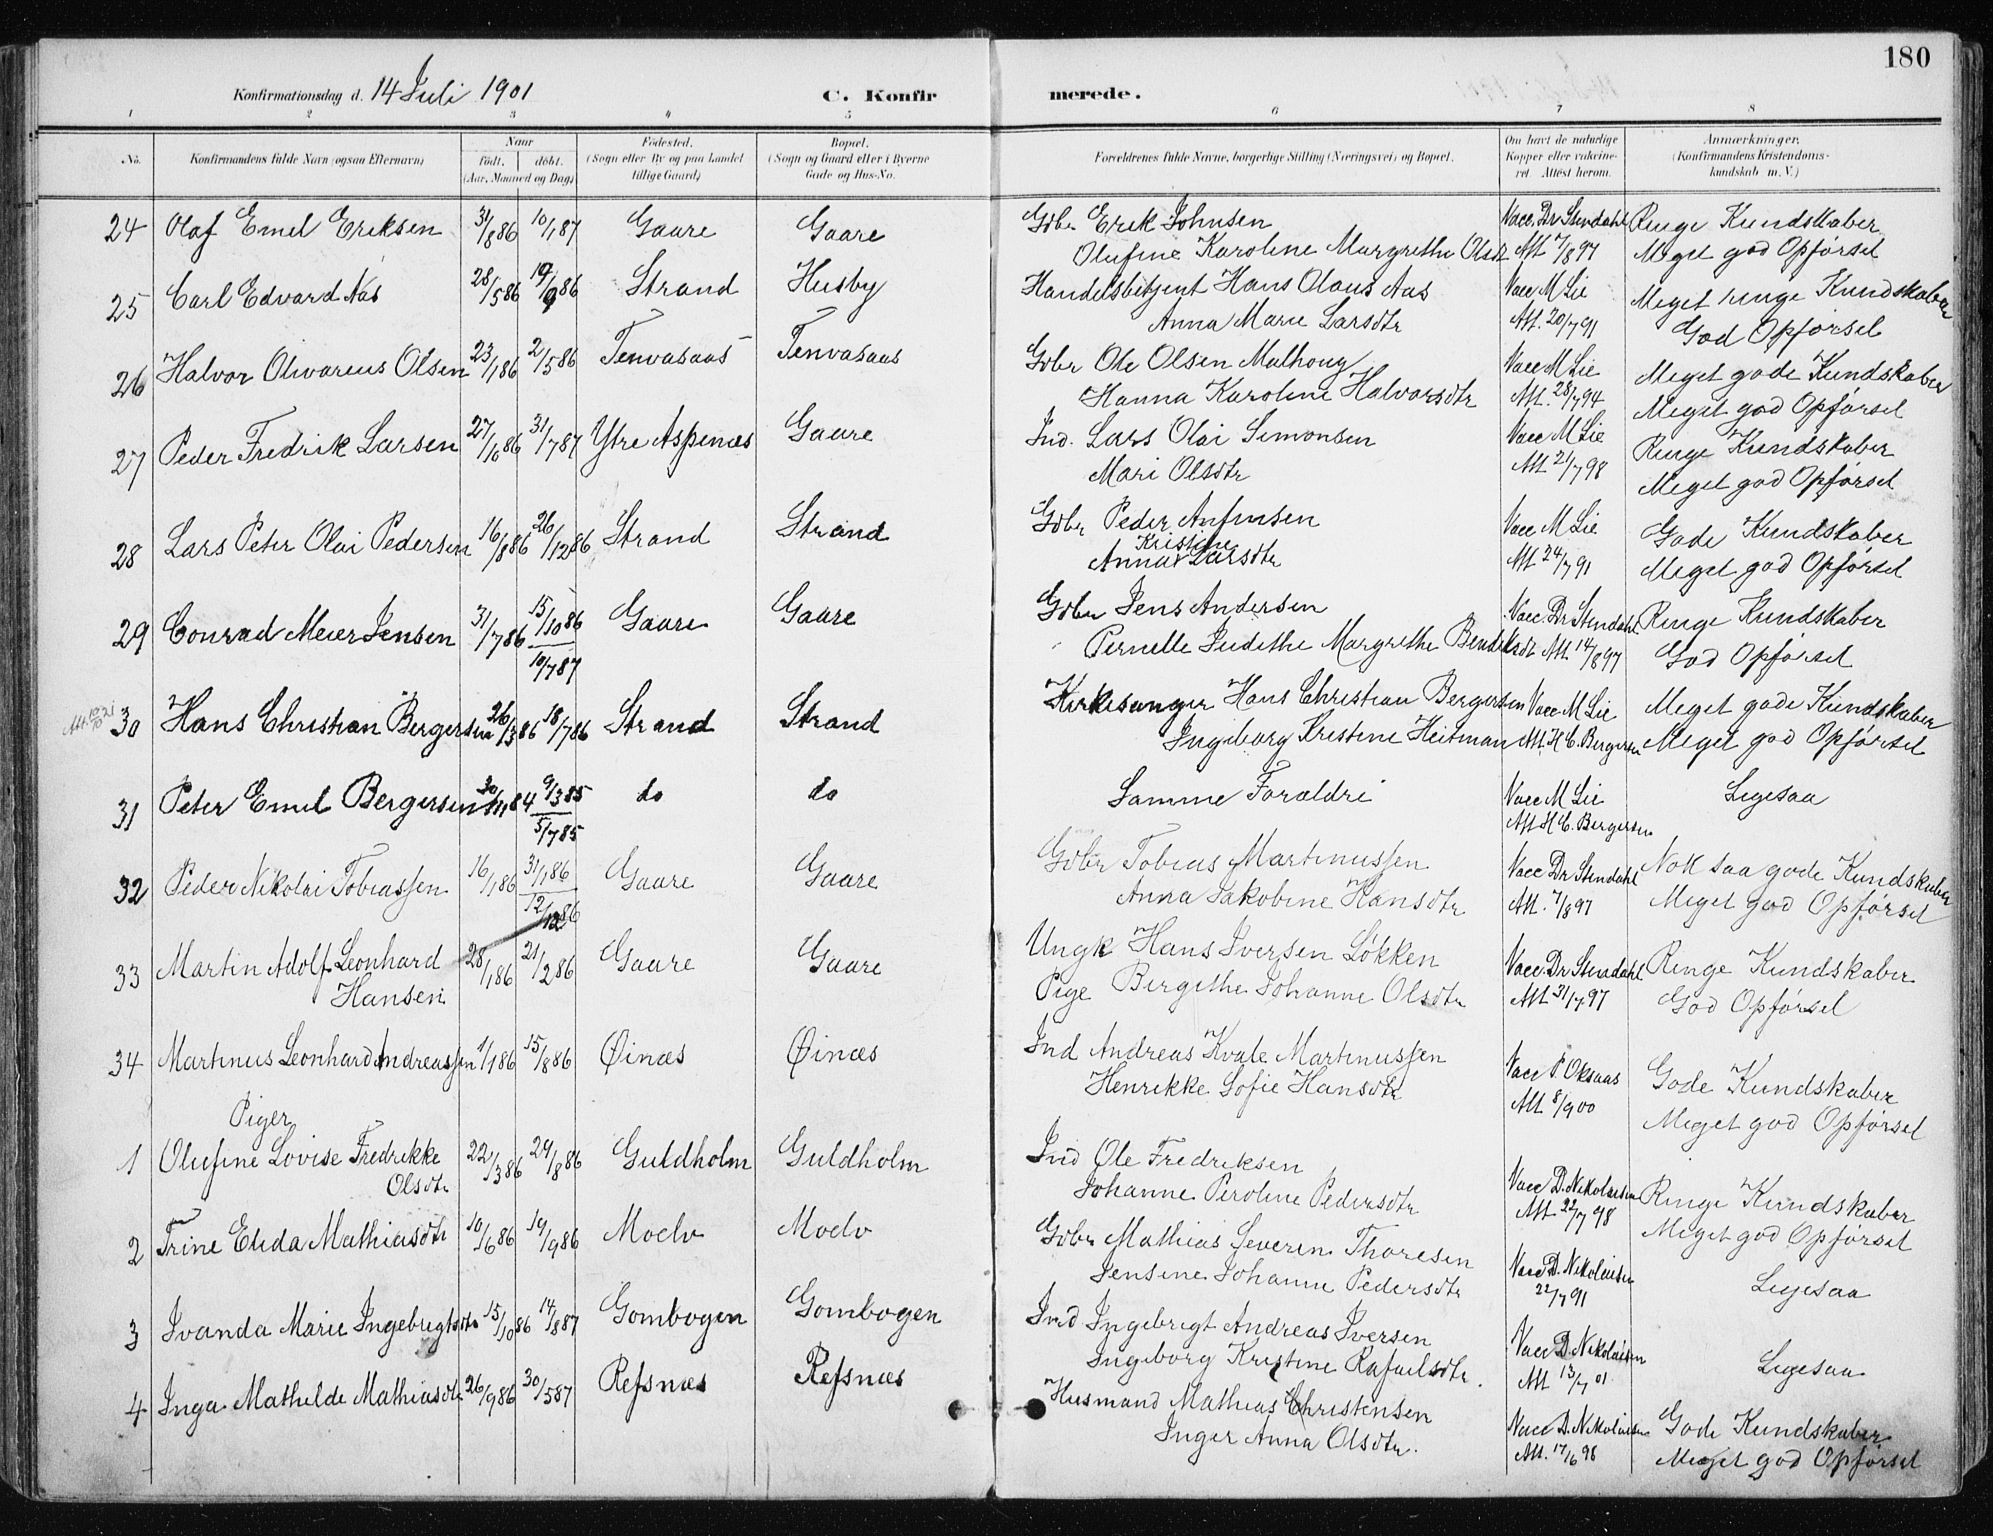 180
Konfirmationsdag d. 14 Juli 1901 C. Konfirmerede.
1 2 3 4 5 6 7 8
No. Konfirmandens fulde Navn (ogsaa Efternavn) Naar født. døbt. (Aar, Maaned og Dag) Fødested. (Sogn eller By og paa Landet tillige Gaard) Bopæl. (Sogn og Gaard eller i Byerne Gade og Hus-No. Forældrenes fulde Navne, borgerlige Stilling (Næringsvei) og Bopæl. Om havt de naturlige Kopper eller vakcineret. Attest herom. Anmærkninger. (Konfirmandens Kristendomskundskab m. V.)
24 Olaf Emil Eriksen 31/8 86 10/1 87 Gaare Gaare Gbr Erik Johnsen Vacc. Dr Stendahl Ringe Kundskaber
Olufine Karoline Margrethe Olsdt Att 7/8 97 Meget god Opførsel
25 Carl Edvard Aas 28/5 86 19/9 86 Strand Husby Handelsbetjent Hans Olaus Aas Vacc M Lie Meget ringe Kundskaber
Anna Marie Larsdtr Att. 20/7 91 God Opførsel
26 Halvor Olivarius Olsen 23/1 86 2/5 86 Tenvasaas Tenvasaas Gbr Ole Olsen Malhoug Vacc M Lie Meget gode Kundskaber
Hanna Karoline Halvorsdtr Att. 28/7 94 Meget god Opførsel
27 Peder Fredrik Larsen 27/10 86 31/7 87 Ytre Aspenæs Gaare Ind. Lars Olai Simonsen Vacc M Lie Ringe Kundskaber
Mari Olsdtr Att 21/7 98 Meget god Opførsel
28 Lars Peter Olai Pedersen 16/8 86 26/12 86 Strand Strand Gbr Peder Anfinsen Vacc M Lie Gode Kundskaber
Anna Kristine Larsdtr Att 24/7 91 Meget god Opførsel
29 Conrad Meier Jensen 31/7 86 15/10 86 Gaare Gaare Gbr Jens Andersen Vacc. Dr Stendahl Ringe Kundskaber
10/7 87 Pernelle Judithe Margrethe Bendiksdt Att 14/8 97 God Opførsel
30 Hans Christian Bergersen 26/3 86 18/7 86 Strand Strand Kirkesanger Hans Christian Bergersen Vacc M Lie Meget gode Kundskaber
Ingeborg Kristine Heitman Att. H C. Bergersen Meget god Opførsel
31 Peter Emil Bergersen 30/11 84 9/3 85 do do Samme Forældre Vacc M Lie Ligesaa
5/7 85 Att H C. Bergersen
32 Peder Nikolai Tobiassen 16/1 86 31/1 86 Gaare Gaare Gbr Tobias Martinussen Vacc Dr Stendahl Nok saa gode Kundskaber
12/12 86 Anna Jakobine Hansdtr Att. 7/8 97 Meget god Opførsel
33 Martin Adolf Leonhard 28/1 86 21/2 86 Gaare Gaare Ungk Hans Iversen Løkken Vacc. Dr Stendahl Ringe Kundskaber
Hansen Pige Bergithe Johanne Olsdtr Att 31/7 97 God Opførsel
34 Martinus Leonhard Andreassen 1/1 86 15/8 86 Øinæs Øinæs Ind Andreas Kvale Martinussen Vacc P Oksaas Gode Kundskaber
Henrikke Sofie Hansdtr Att 8/9 00 Meget god Opførsel
Piger
1 Olufine Lovise Fredrikke 22/3 86 29/8 86 Guldholm Guldholm Ind Ole Fredriksen Vacc D. Nikolaisen Ringe Kundskaber
Olsdtr Johanne Peroline Pedersdtr Att 22/7 98 Meget god Opførsel
2 Trine Elida Mathiasdtr 10/6 86 19/9 86 Moelv Moelv Gbr Mathias Severin Thoresen Vacc D. Nikolaisen Ligesaa
Jensine Johanne Pedersdtr 22/7 91
3 Ivanda Marie Ingebrigtsdtr 15/10 86 14/8 87 Gombogen Gombogen Ind Ingebrigt Andreas Iversen Vacc D. Nikolaisen Ligesaa
Ingeborg Kristine Rafaelsdtr. Att 13/7 01
4 Inga Mathilde Mathiasdtr 26/9 86 30/5 87 Refsnæs Refsnæs Husmand Mathias Christensen Vacc D. Nikolaisen Gode Kundskaber
Inger Anna Olsdtr. Att. 17/6 98 Meget god Opførsel